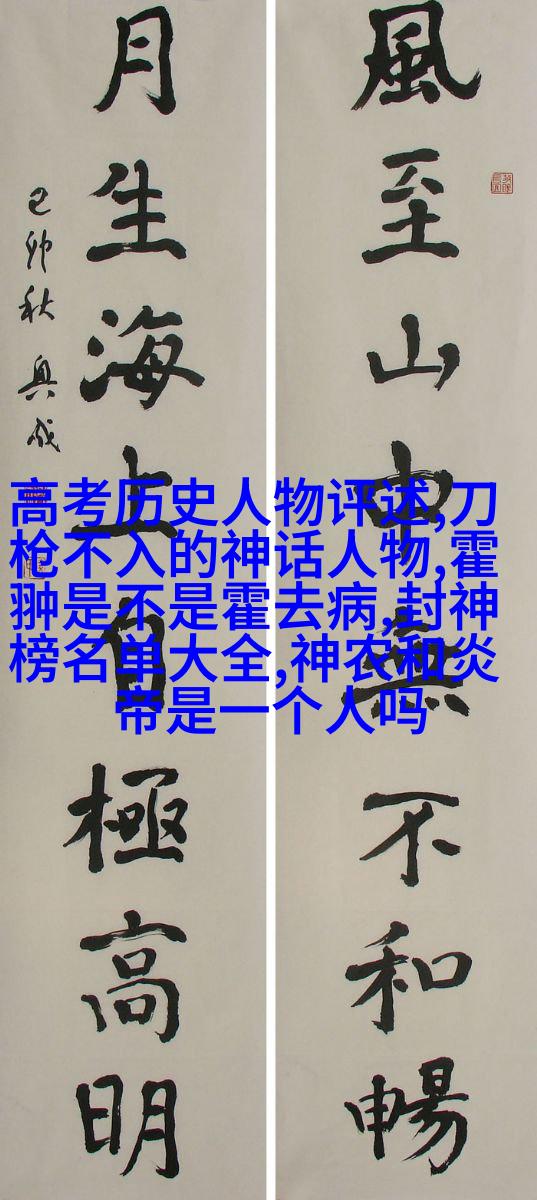 風至山中無不和暢
月生海上自極高明
己卯秋
高考历史人物评述,刀
枪不入的神话人物,霍
翀是不是霍去病,封神
榜名单大全,神农和炎
帝是一个人吗